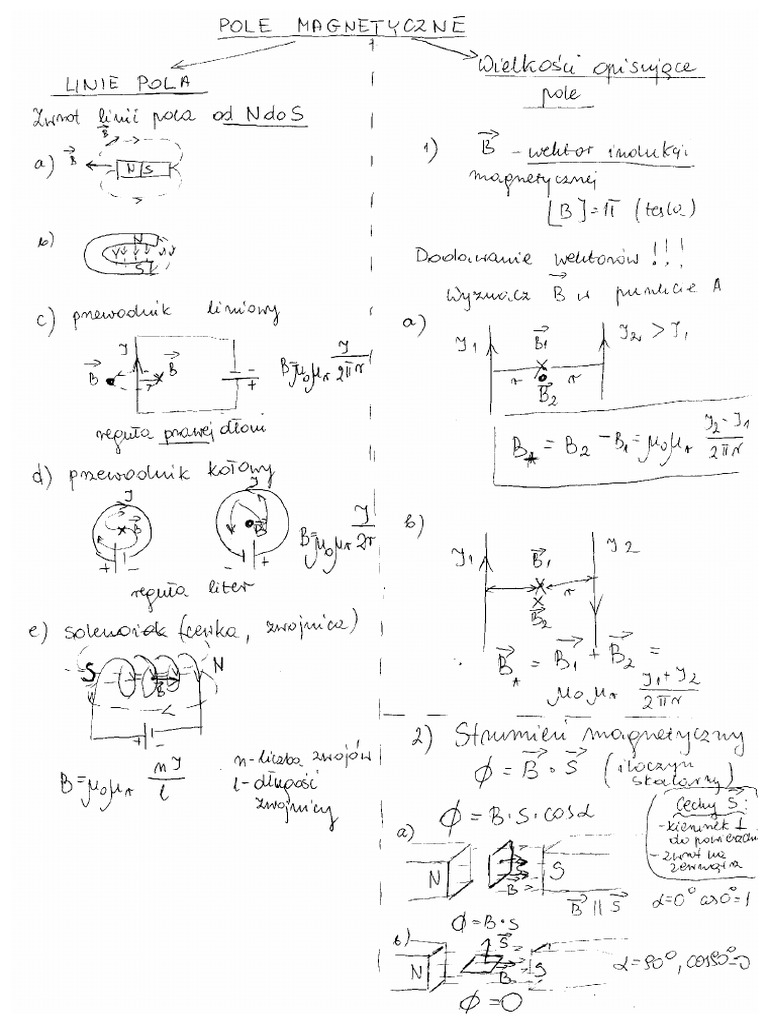 POLE MAGNETYCZNE
LINIE POLA
Zwrot linii pola od N do S
a) B⃗ N S B⃗
b) N S
c) przewodnik liniowy
I B⃗ B⃗ - + B=μ₀μᵣ I/2πr
reguła prawej dłoni
d) przewodnik kołowy
I B⃗ + - I B⃗ - + B=μ₀μᵣ I/2r
reguła liter
e) solenoida (cewka, zwojnica)
S N B⃗
+ -
B=μ₀μᵣ nI/l
n-liczba zwojów
l-długość
zwojnicy
Wielkości opisujące
pole
1) B⃗ - wektor indukcji
magnetycznej
[B]=1T (tesla)
Dodawanie wektorów!!!
Wyznacz B⃗ w punkcie A
a) I₁ B⃗₁ I₂ > I₁
r r
B⃗₂
B_A = B₂ - B₁ = μ₀μᵣ I₂-I₁/2πr
b) I₁ B⃗₁ I₂
r
B⃗₂
B⃗_A = B⃗₁ + B⃗₂ =
μ₀μᵣ I₁+I₂/2πr
2) Strumień magnetyczny
ϕ = B⃗ ∘ S⃗ (iloczyn
skalarny)
ϕ = B·S·cosα
Cechy S⃗:
-kierunek ⊥
do powierzchni
-zwrot na
zewnątrz
a) N B⃗ S
B⃗ || S⃗ α=0° cos0°=1
ϕ=B·S
b) N S⃗ B⃗ S α=90°, cos90°=0
ϕ=0